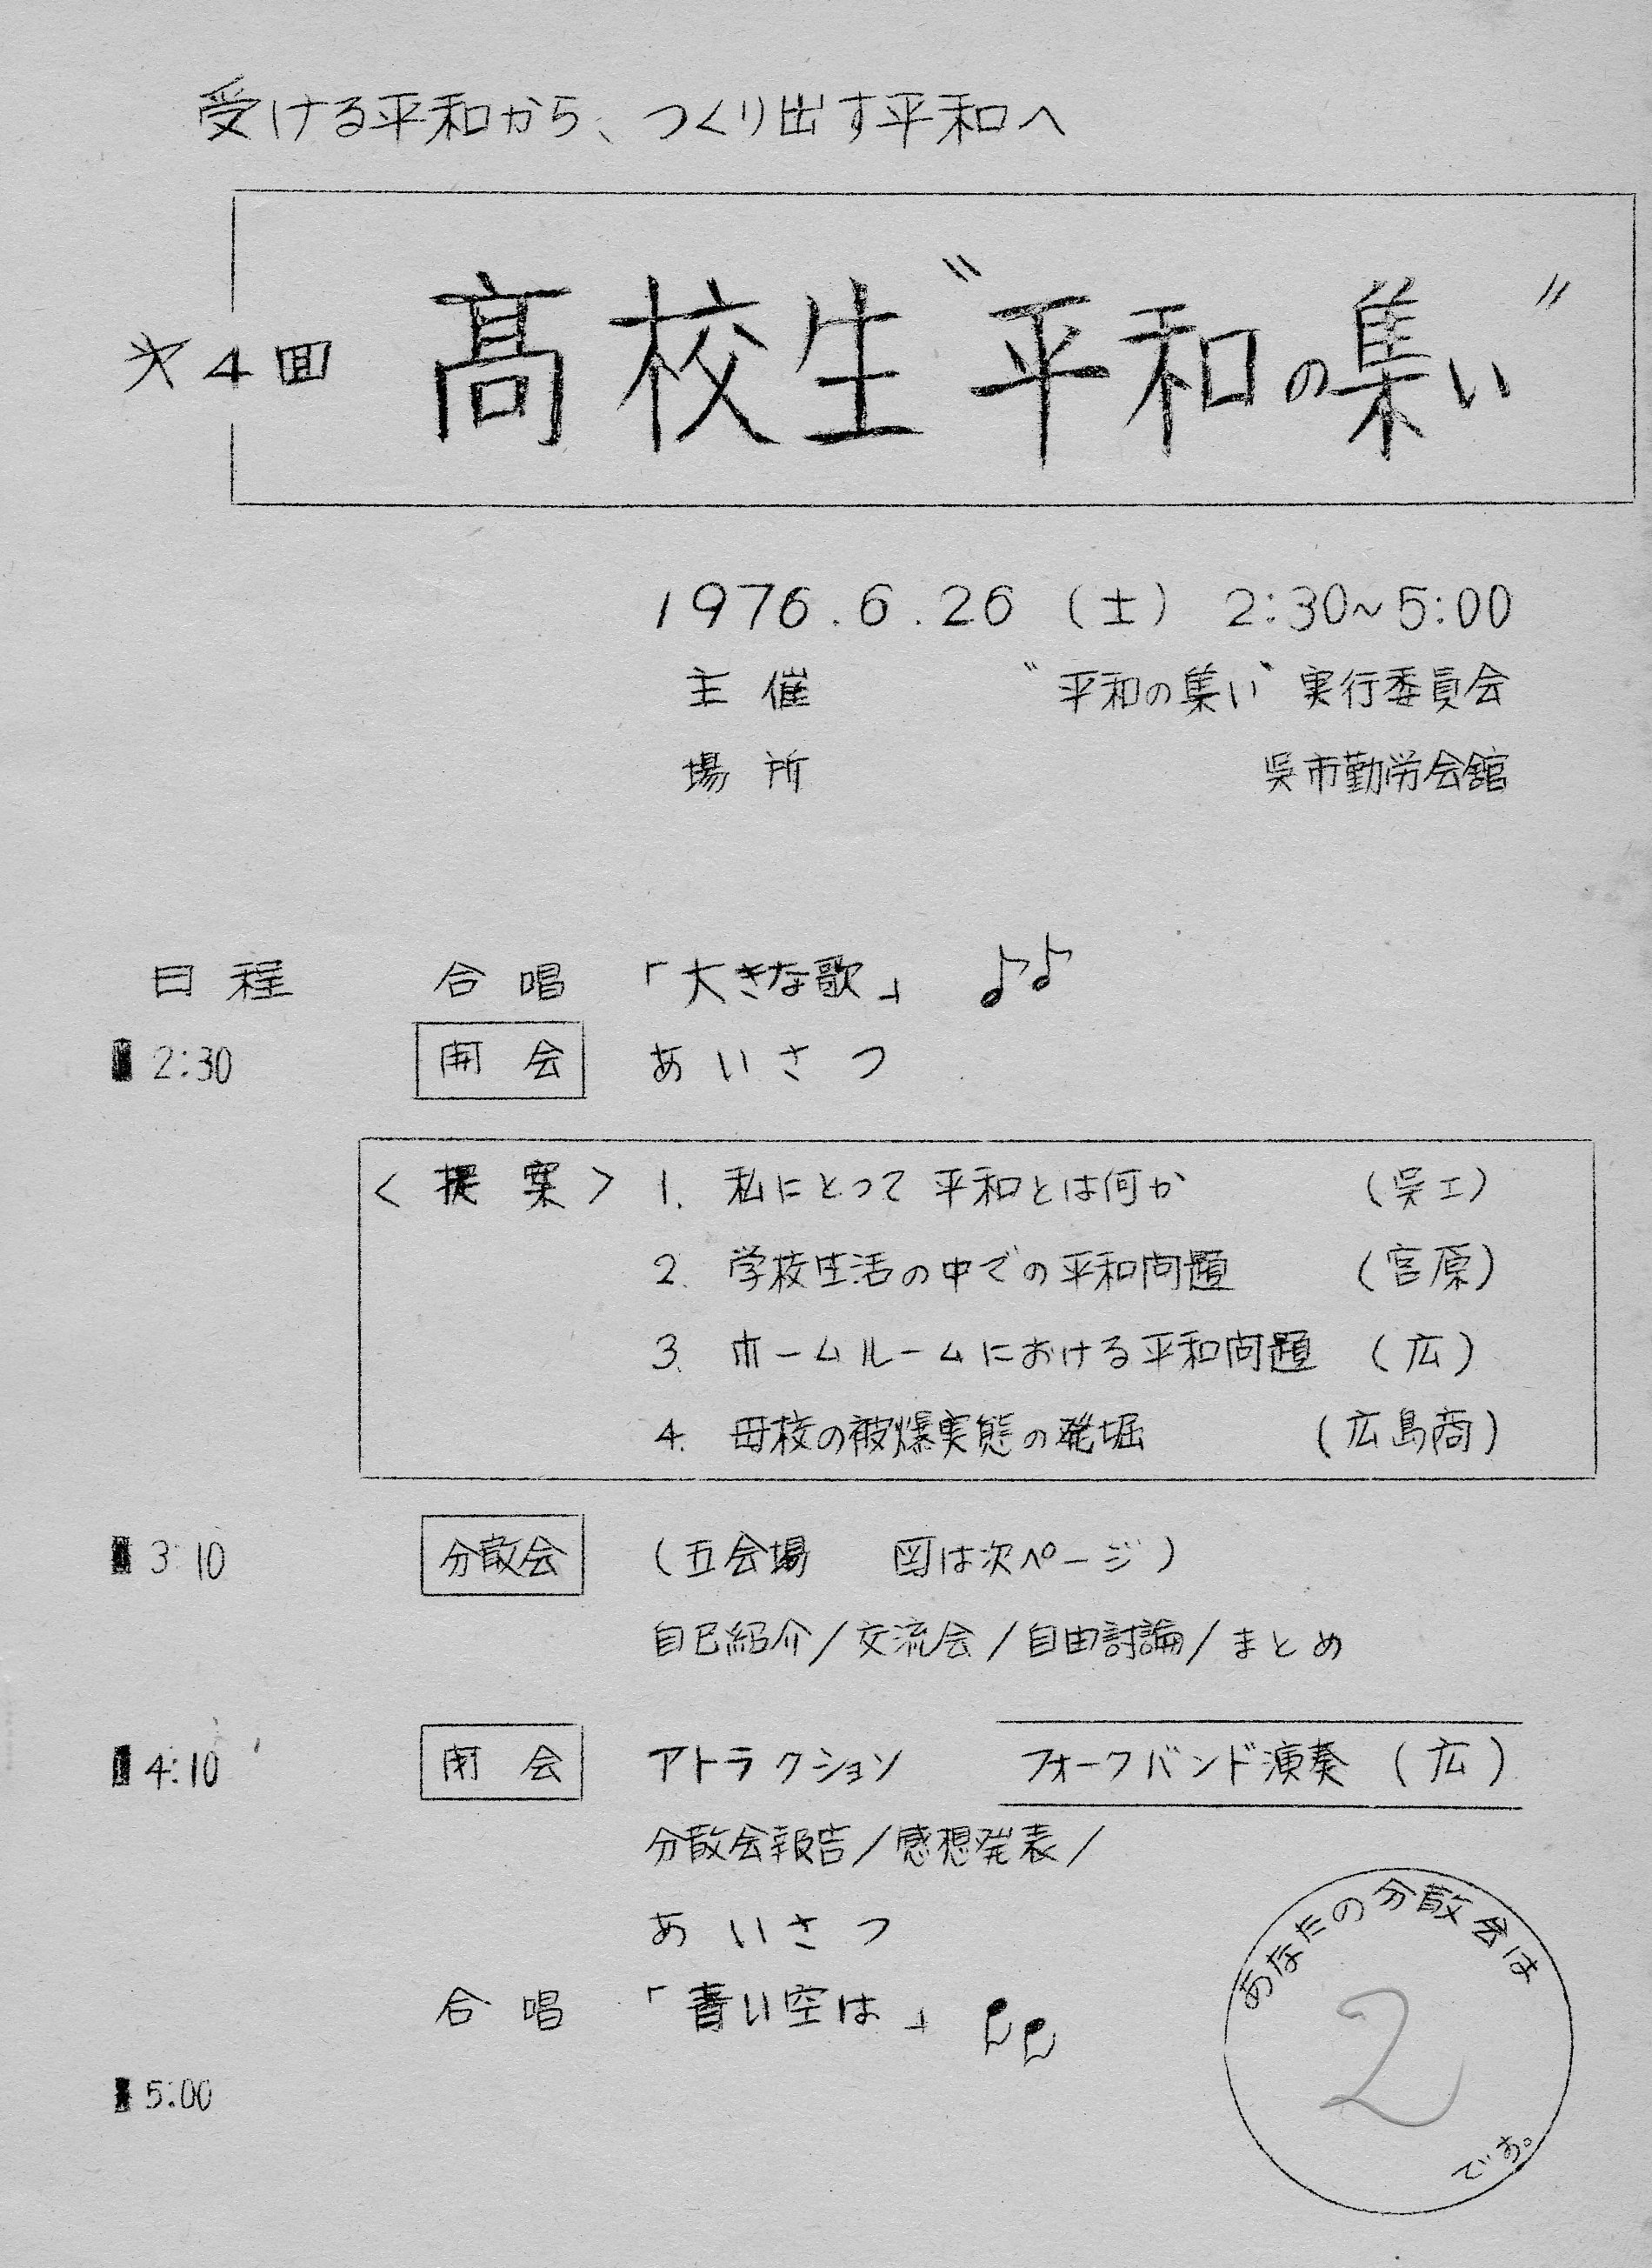 受ける平和から、つくり出す平和へ
第4回 高校生〝平和の集い〟
1976.6.26（土） 2:30~5:00
主催 〝平和の集い〟実行委員会
場所 呉市勤労会館
日程 合唱 「大きな歌」 ♪♪
2:30 開会 あいさつ
〈提案〉 1. 私にとって平和とは何か （呉工）
2. 学校生活の中での平和問題 （宮原）
3. ホームルームにおける平和問題 （広）
4. 母校の被爆実態の発掘 （広島商）
3:10 分散会 （五会場 図は次ページ）
自己紹介/交流会/自由討論/まとめ
4:10 閉会 アトラクション フォークバンド演奏（広）
分散会報告/感想発表/
あいさつ
合唱 「青い空は」
5:00
あなたの分散会は
2
です。